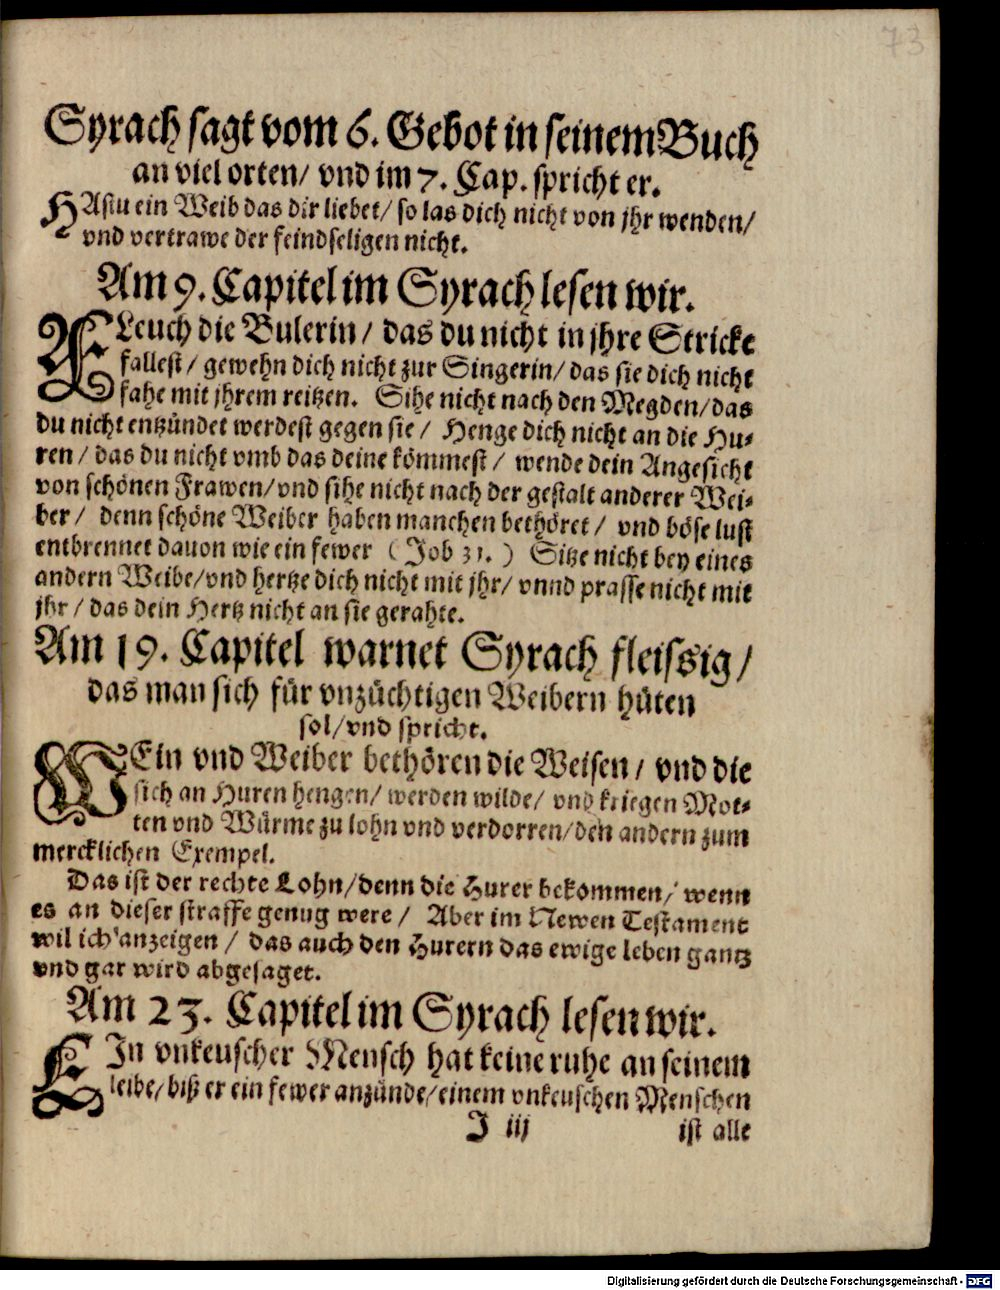 73
Syrach sagt vom 6. Gebot in seinem Buch
an viel orten/ vnd im 7. Cap. spricht er.
HAstu ein Weib das dir liebet/ so las dich nicht von jhr wenden/
vnd vertrawe der feindseligen nicht.
Am 9. Capitel im Syrach lesen wir.
FLeuch die Bulerin/ das du nicht in jhre Stricke
fallest/ gewehn dich nicht zur Singerin/ das sie dich nicht
fahe mit jhrem reitzen. Sihe nicht nach den Megden/ das
du nicht entzündet werdest gegen sie/ Henge dich nicht an die Hu-
ren/ das du nicht vmb das deine kömmest/ wende dein Angesicht
von schönen Frawen/ vnd sihe nicht nach der gestalt anderer Wei-
ber/ denn schöne Weiber haben manchen bethöret/ vnd böse lust
entbrennet dauon wie ein fewer (Job 31.) Sitze nicht bey eines
andern Weibe/ vnd hertze dich nicht mit jhr/ vnnd prasse nicht mit
jhr/ das dein Hertz nicht an sie gerahte.
Am 19. Capitel warnet Syrach fleissig/
das man sich für vnzüchtigen Weibern hüten
sol/ vnd spricht.
WEin vnd Weiber bethören die Weisen/ vnd die
sich an Huren hengen/ werden wilde/ vnd kriegen Mot-
ten vnd Würme zu lohn vnd verdorren/ den andern zum
mercklichen Exempel.
Das ist der rechte Lohn/ denn die Hurer bekommen/ wenn
es an dieser straffe genug were/ Aber im Newen Testament
wil ich anzeigen/ das auch den Hurern das ewige leben gantz
vnd gar wird abgesaget.
Am 23. Capitel im Syrach lesen wir.
EIn vnkeuscher Mensch hat keine ruhe an seinem
leibe/ biß er ein fewer anzünde/ einem vnkeuschen Menschen
J iij
ist alle
Digitalisierung gefördert durch die Deutsche Forschungsgemeinschaft - DFG